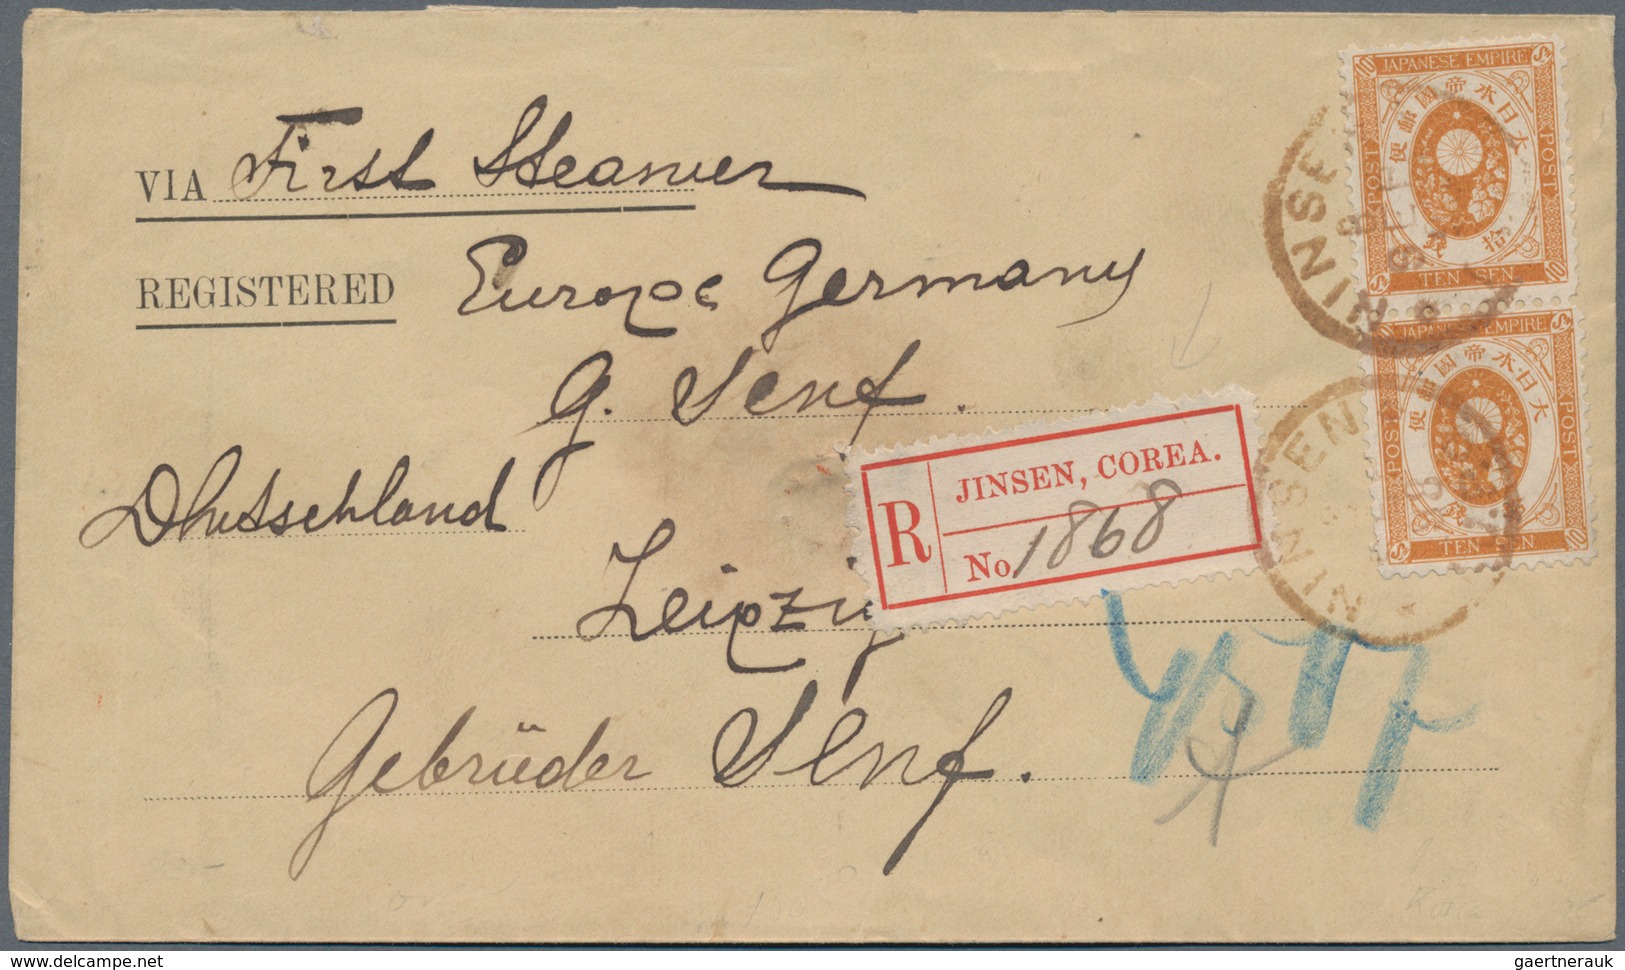 VIA First Steamer
REGISTERED Europe Germany
G. Senf.
Dhutschland
Leipzig
Gebrüder Senf.
R JINSEN, COREA.
No 1868
10 JAPANESE EMPIRE Sn
大日本帝國郵便
POST POST
拾錢
Sn TEN SEN 10
10 JAPANESE EMPIRE Sn
大日本帝國郵便
POST POST
Sn TEN SEN 10
JINSEN
JINSEN
delcampe.net
gaertnerauk